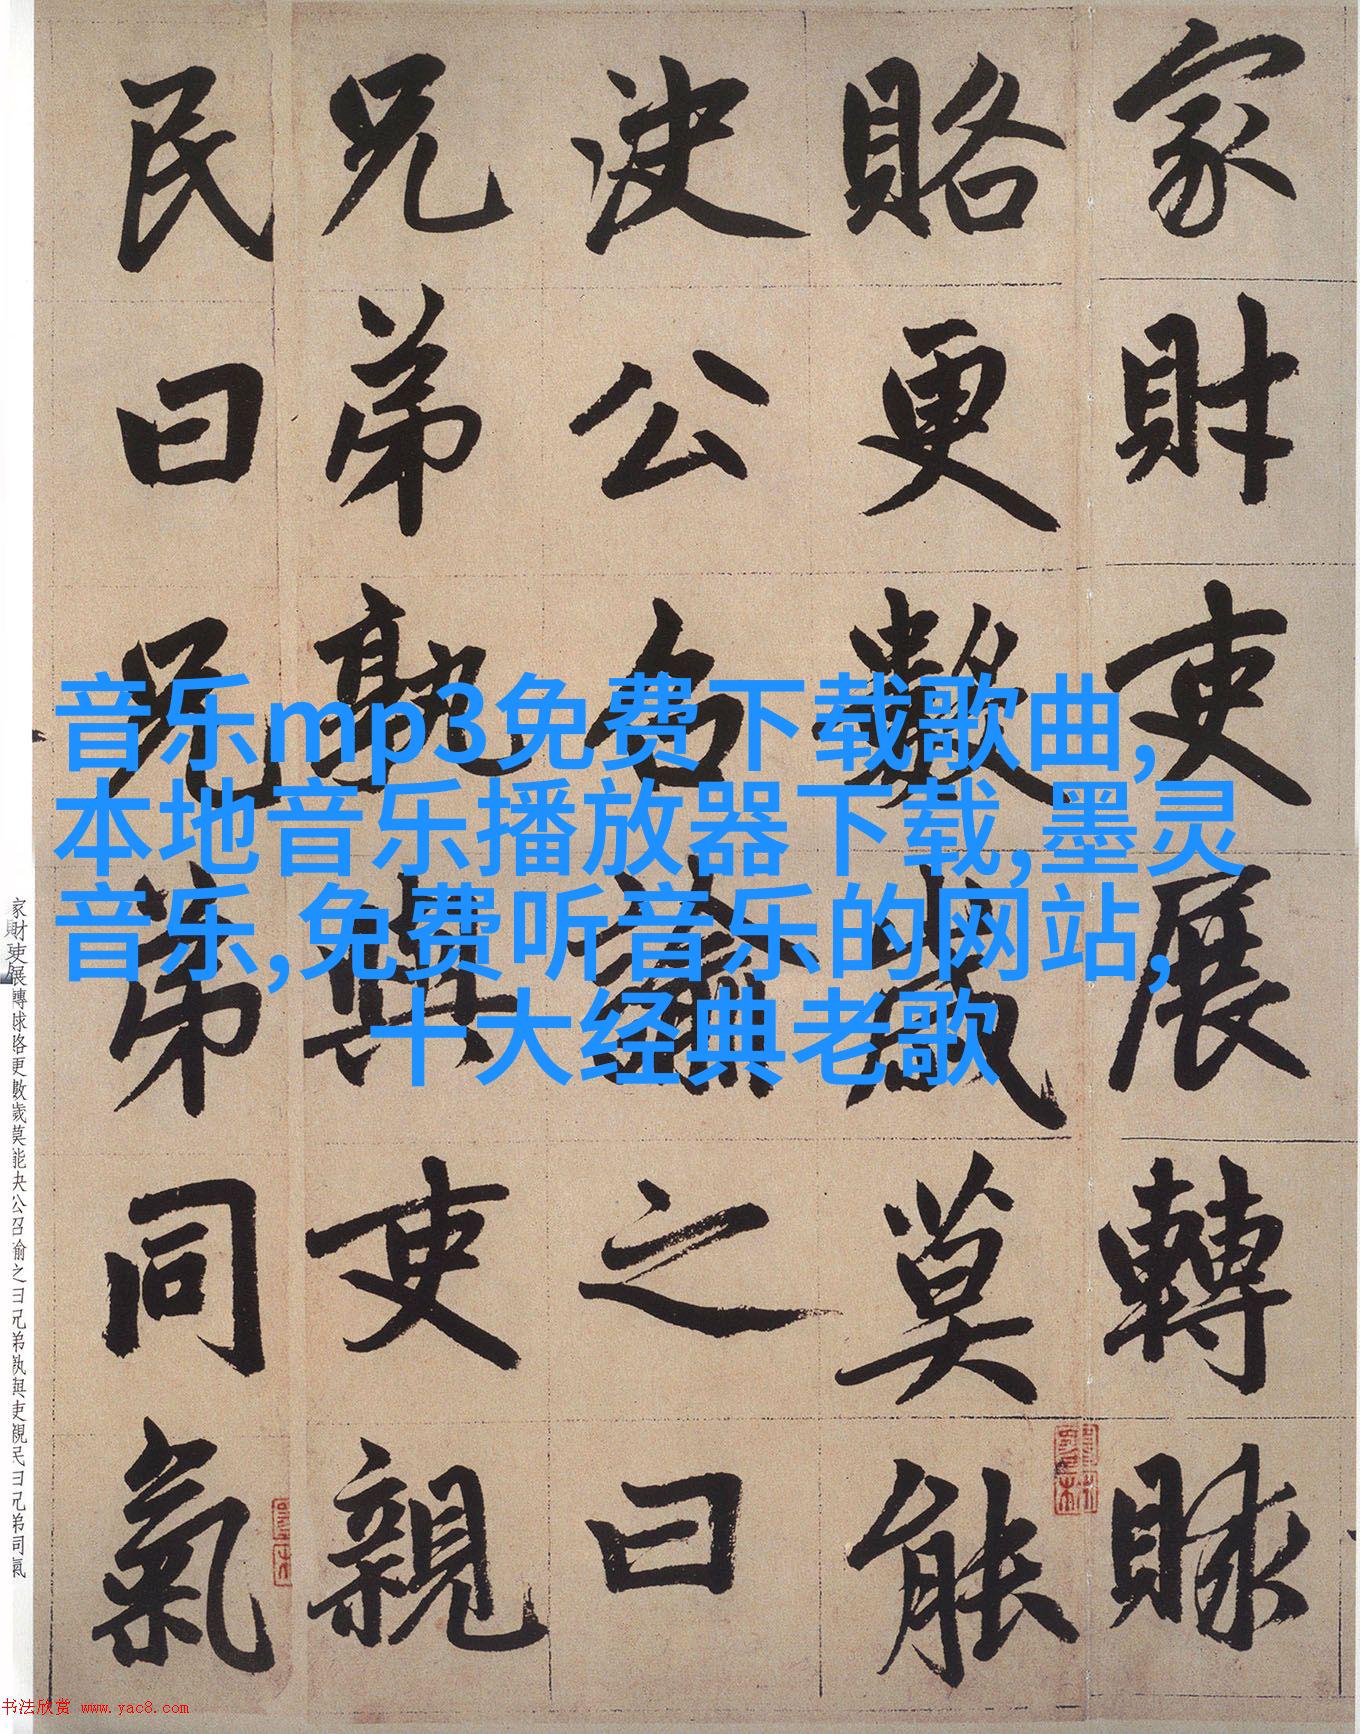 家財吏展轉賕
賂更數歲莫能
決公召諭之曰
兄弟孰與吏親
民曰兄弟同氣
音乐mp3免费下载歌曲,
本地音乐播放器下载,墨灵
音乐,免费听音乐的网站,
十大经典老歌
家財吏展轉賕賂更數歲莫能決公召諭之曰兄弟孰與吏親民曰兄弟同氣
书法欣赏 www.yac8.com